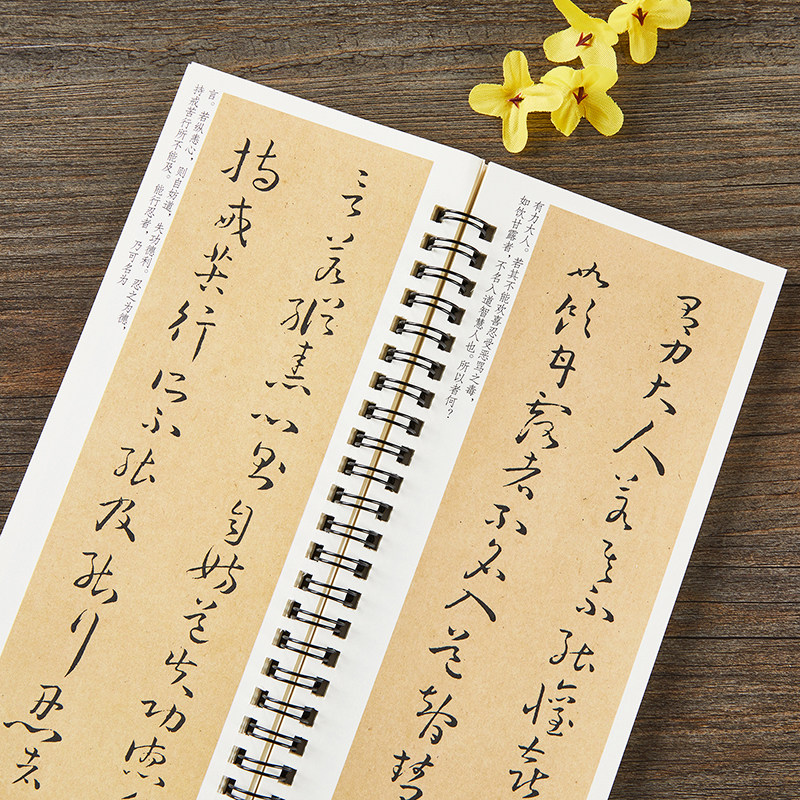 言。若纵恚心，则自妨道，失功德利。忍之为德，
持戒苦行所不能及。能行忍者，乃可名为
言若縱恚心則自妨道失功德
持戒苦行所不能及能行忍者
有力大人。若其不能欢喜忍受恶骂之毒，
如饮甘露者，不名入道智慧人也。所以者何？
有力大人若其不能懽喜
如飲甘露者不名入道智慧